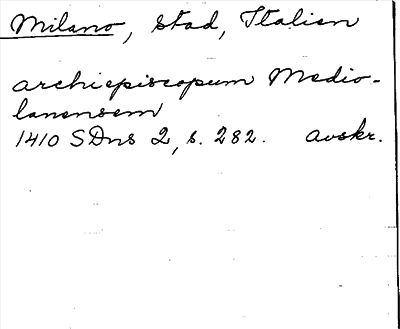 Milano, stad, Italien
archiepiscopum Medio-
lanensem
1410 SDns 2, s. 282. Avskr.